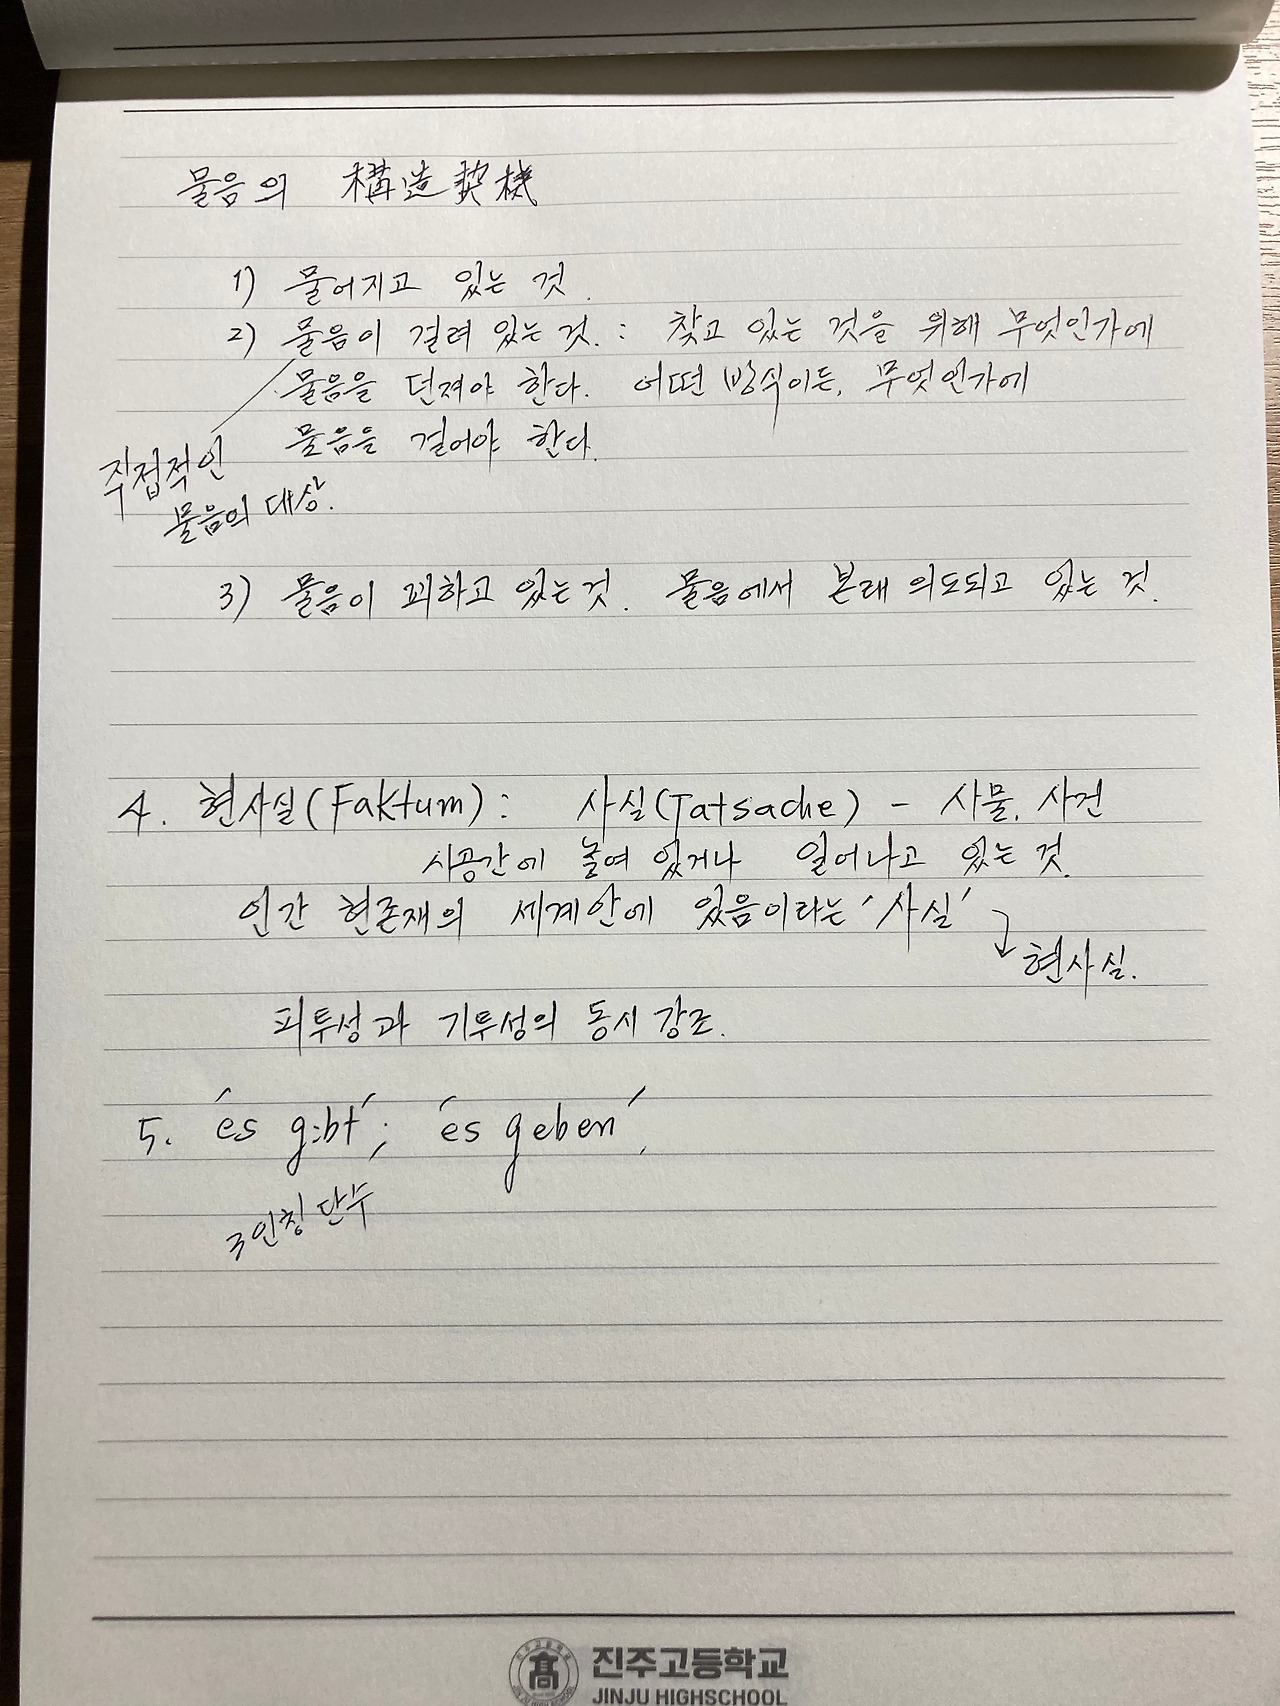 물음의 構造契機
1) 물어지고 있는 것.
2) 물음이 걸려 있는 것. : 찾고 있는 것을 위해 무엇인가에
물음을 던져야 한다. 어떤 방식이든, 무엇인가에
물음을 걸어야 한다.
직접적인
물음의 대상.
3) 물음이 꾀하고 있는 것. 물음에서 본래 의도되고 있는 것.
4. 현사실(Faktum) : 사실(Tatsache) - 사물, 사건
시공간에 놓여 있거나 일어나고 있는 것.
인간 현존재의 세계안에 있음이라는 '사실'
현사실.
피투성과 기투성의 동시 강조.
5. 'es gibt'; 'es geben'.
3인칭 단수
진주고등학교
JINJU HIGHSCHOOL